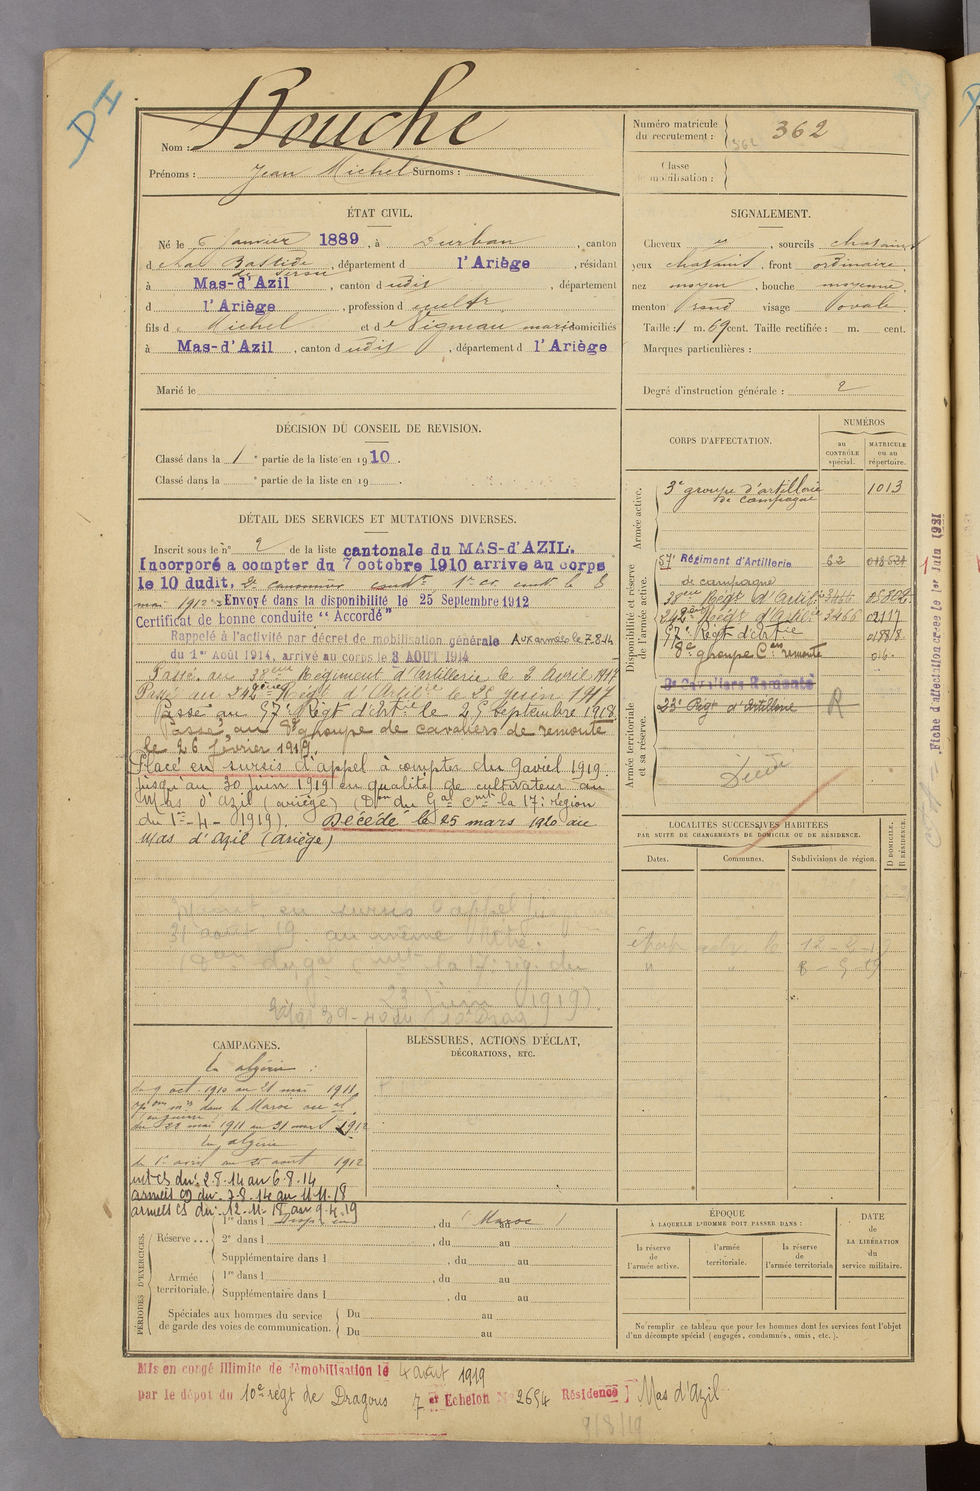 Bouche
Nom :
Prénoms : Jean Michel Surnoms :
Numéro matricule du recrutement : 362
362
Classe de mobilisation :
ÉTAT CIVIL.
Né le 6 Janvier 1889, à Durban, canton
d La Bastide de Sérou, département d l'Ariège, résidant
à Mas-d'Azil, canton d udit, département
d l'Ariège, profession d cultr
fils d e Michel et d e Vignau Marie domiciliés
à Mas-d'Azil, canton d udit, département d l'Ariège
Marié le
SIGNALEMENT.
Cheveux, sourcils chatains
yeux chatains, front ordinaire,
nez moyen, bouche moyenne,
menton rond visage ovale.
Taille : 1 m. 69 cent. Taille rectifiée : m. cent.
Marques particulières :
Degré d'instruction générale : 2
DÉCISION DU CONSEIL DE REVISION.
Classé dans la 1e partie de la liste en 1910.
Classé dans la e partie de la liste en 19
DÉTAIL DES SERVICES ET MUTATIONS DIVERSES.
Inscrit sous le n° 2 de la liste cantonale du MAS-d'AZIL.
Incorporé a compter du 7 octobre 1910 arrive au corps
le 10 dudit. 2e canonnier condr 1er cr condr le 8
mai 1912 Envoyé dans la disponibilité le 25 Septembre 1912
Certificat de bonne conduite "Accordé"
Rappelé à l'activité par décret de mobilisation générale Aux armées le 7.8.14
du 1er Août 1914, arrivé au corps le 3 AOUT 1914
Passé au 38eme Régiment d'Artillerie le 2 Avril 1917
Passé au 242eme Régt d'Artie le 25 Juin 1917
Passé au 57e Régt d'Artie le 25 Septembre 1918
Passé au 8e groupe de cavaliers de remonte
le 26 février 1919.
Placé en sursis d'appel à compter du 9 avril 1919
jusqu'au 30 Juin 1919 en qualité de cultivateur au
Mas d'Azil (ariège) (Don du Gal Cmt la 17e région
du 1er-4-1919). Décédé le 25 mars 1920 au
Mas d'Azil (ariège)
en sursis d'appel jusqu'au
31 août 19. au même titre.
du gal cmt la 17e rég. du
23 Juin 1919)
CORPS D'AFFECTATION.
NUMÉROS
au CONTRÔLE spécial.
MATRICULE ou au répertoire.
Armée active.
3e groupe d'artillerie de campagne 1013
Disponibilité et réserve de l'armée active.
57e Régiment d'Artillerie 62
de campagne
38eme Régt d'Artie
242eme Régt d'Artie 3466 02117
57e Régt d'Artie
8e groupe Cers remonte
Armée territoriale et sa réserve.
8e Cavaliers Remonte
23e Régt d'Artillerie R
Décédé
LOCALITÉS SUCCESSIVES HABITÉES
PAR SUITE DE CHANGEMENTS DE DOMICILE OU DE RÉSIDENCE.
Dates. Communes. Subdivisions de région.
D DOMICILE. R RÉSIDENCE.
CAMPAGNES.
En algérie :
du 9 oct. 1910 au 21 mai 1911
du 22 mai 1911 au 31 mars 1912
En algérie
du 1er avril au 25 aout 1912
int cs du 2.8.14 au 6.8.14
armées cd du 7.8.14 au 11.11.18
armées cs du 12.11.18 au 9.4.19
BLESSURES, ACTIONS D'ÉCLAT,
DÉCORATIONS, ETC.
PÉRIODES D'EXERCICES.
Réserve ... 1re dans l , du (Maroc) au
2e dans l , du au
Supplémentaire dans l , du au
Armée territoriale. 1re dans l , du au
Supplémentaire dans l , du au
Spéciales aux hommes du service de garde des voies de communication. Du au
Du au
ÉPOQUE
À LAQUELLE L'HOMME DOIT PASSER DANS :
la réserve de l'armée active.
l'armée territoriale.
la réserve de l'armée territoriale
DATE de LA LIBÉRATION du service militaire.
Ne remplir ce tableau que pour les hommes dont les services font l'objet
d'un décompte spécial (engagés, condamnés, omis, etc.).
Mis en congé illimité de démobilisation le 4 août 1919
par le dépôt du 10e régt de Dragons 7e Echelon N° 2654 Résidence Mas d'Azil
9/8/19
Fiche d'affectation créée le 1er Juin 1921